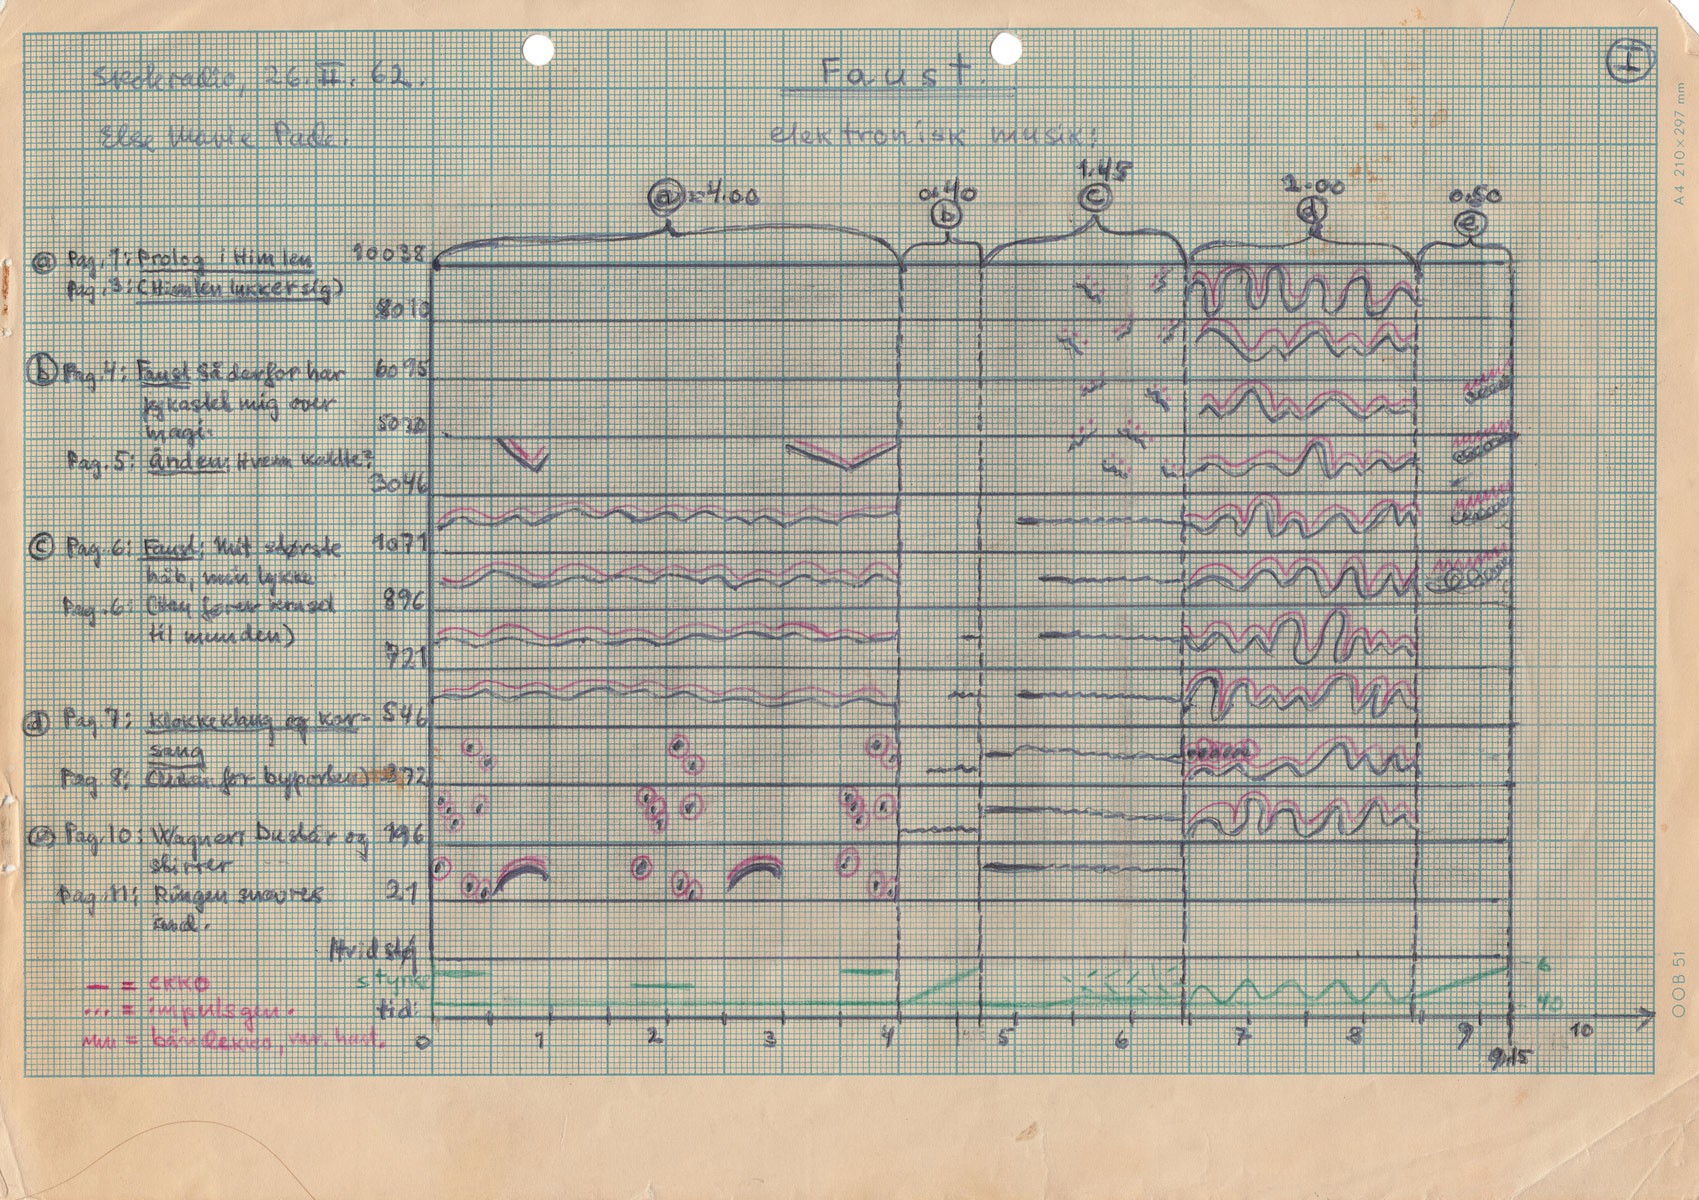 Skoleradio, 26. II. 62.
Faust.
I
Else Marie Pade.
elektronisk musik:
a = 4.00
0.40
b
1.45
c
2.00
d
0.50
e
a Pag. 1: Prolog i Himlen
Pag. 3: (Himlen lukker sig)
b Pag. 4: Faust Så derfor har
jeg kastet mig over
magi.
Pag. 5: Ånden: Hvem kaldte?
c Pag. 6: Faust: Mit største
håb, min lykke
Pag. 6: (Han fører krusd
til munden)
d Pag. 7: Klokkeklang og kor-
sang
Pag. 8: (Uden for byporten)
e Pag. 10: Wagner: Du står og
stirrer
Pag. 11: Ringen snævres
ind.
10038
8010
6095
5020
3046
1071
896
721
546
372
196
21
Hvid støj
styrke
tid:
— = ekko
... = impulsgen.
= båndekko, var. hast.
-6
-40
0 1 2 3 4 5 6 7 8 9 9,15 10
A4 210 × 297 mm
OOB 51